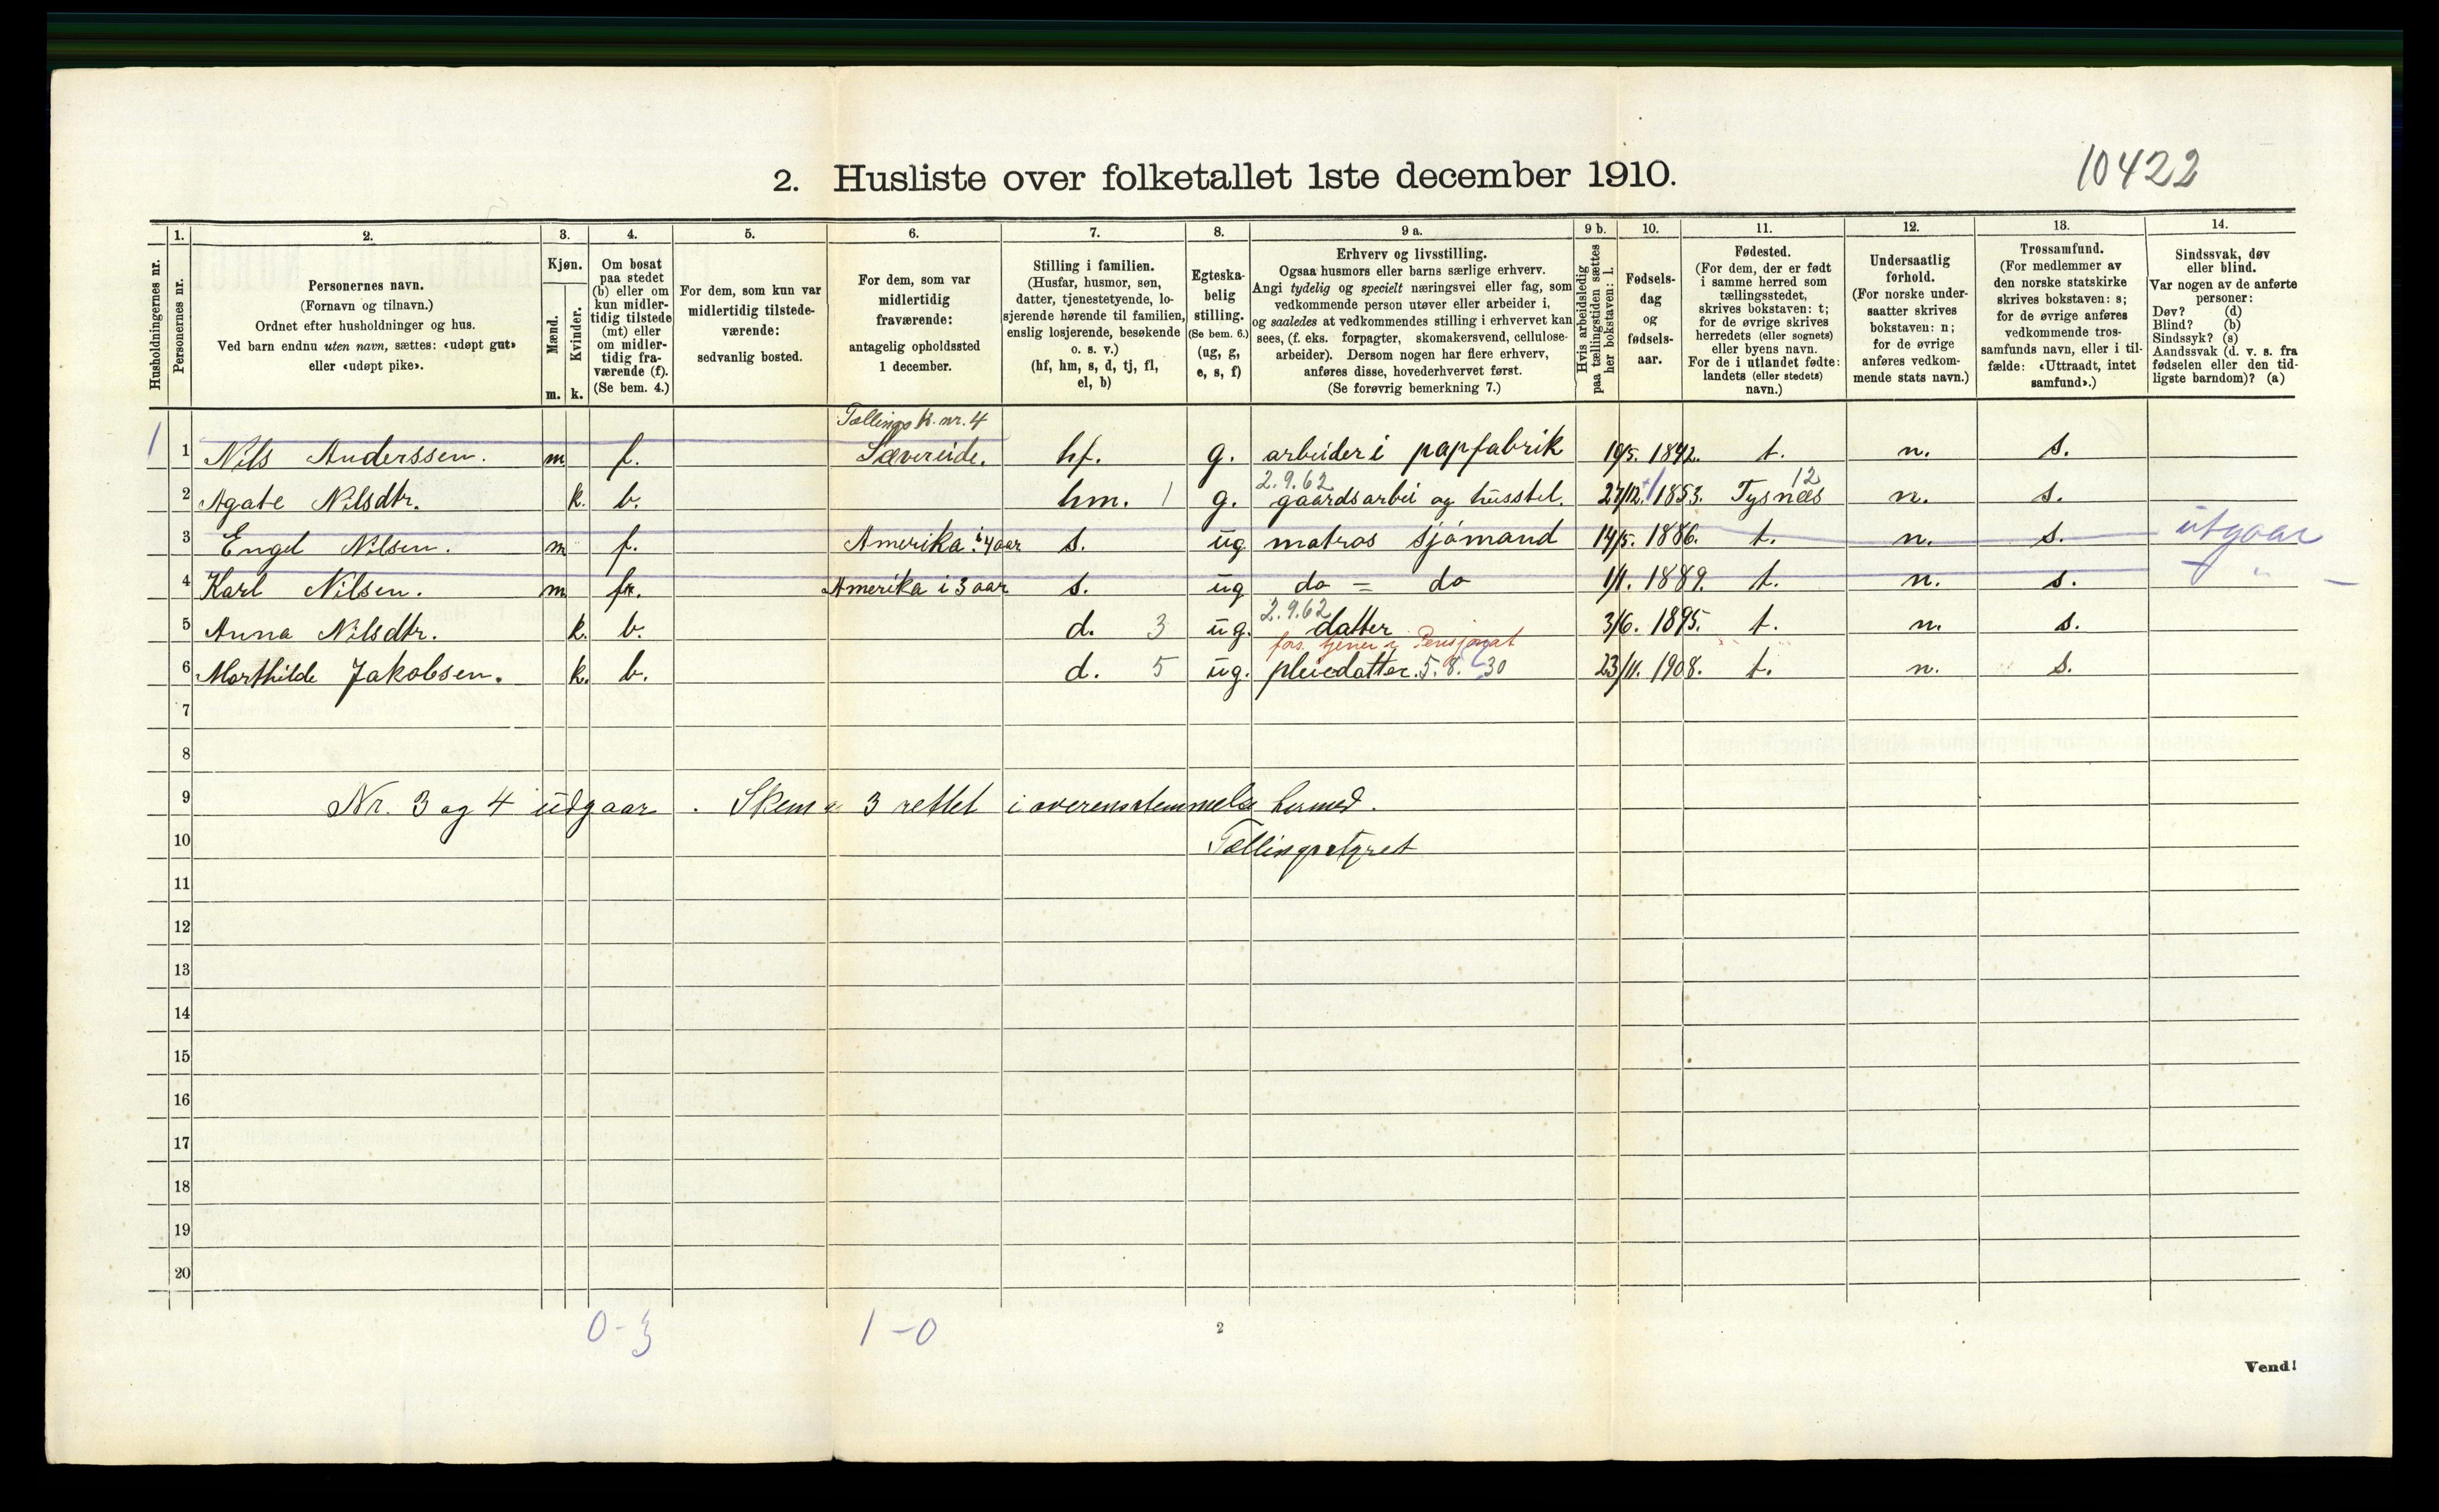 10422
2. Husliste over folketallet 1ste december 1910.
Husholdningernes nr.
1.
Personernes nr.
2.
Personernes navn.
(Fornavn og tilnavn.)
Ordnet efter husholdninger og hus.
Ved barn endnu uten navn, sættes: «udøpt gut»
eller «udøpt pike».
3.
Kjøn.
Mænd.
Kvinder.
m. k.
4.
Om bosat
paa stedet
(b) eller om
kun midler-
tidig tilstede
(mt) eller
om midler-
tidig fra-
værende (f).
(Se bem. 4.)
5.
For dem, som kun var
midlertidig tilstede-
værende:
sedvanlig bosted.
6.
For dem, som var
midlertidig
fraværende:
antagelig opholdssted
1 december.
7.
Stilling i familien.
(Husfar, husmor, søn,
datter, tjenestetyende, lo-
sjerende hørende til familien,
enslig losjerende, besøkende
o. s. v.)
(hf, hm, s, d, tj, fl,
el, b)
8.
Egteska-
belig
stilling.
(Se bem. 6.)
(ug, g,
e, s, f)
9 a.
Erhverv og livsstilling.
Ogsaa husmors eller barns særlige erhverv.
Angi tydelig og specielt næringsvei eller fag, som
vedkommende person utøver eller arbeider i,
og saaledes at vedkommendes stilling i erhvervet kan
sees, (f. eks. forpagter, skomakersvend, cellulose-
arbeider). Dersom nogen har flere erhverv,
anføres disse, hovederhvervet først.
(Se forøvrig bemerkning 7.)
9 b.
Hvis arbeidsledig
paa tællingstiden sættes
her bokstaven: l.
10.
Fødsels-
dag
og
fødsels-
aar.
11.
Fødested.
(For dem, der er født
i samme herred som
tællingsstedet,
skrives bokstaven: t;
for de øvrige skrives
herredets (eller sognets)
eller byens navn.
For de i utlandet fødte:
landets (eller stedets)
navn.)
12.
Undersaatlig
forhold.
(For norske under-
saatter skrives
bokstaven: n;
for de øvrige
anføres vedkom-
mende stats navn.)
13.
Trossamfund.
(For medlemmer av
den norske statskirke
skrives bokstaven: s;
for de øvrige anføres
vedkommende tros-
samfunds navn, eller i til-
fælde: «Uttraadt, intet
samfund».)
14.
Sindssvak, døv
eller blind.
Var nogen av de anførte
personer:
Døv? (d)
Blind? (b)
Sindssyk? (s)
Aandssvak (d. v. s. fra
fødselen eller den tid-
ligste barndom)? (a)
Tællings k. nr. 4
1 1 Nils Anderssen. m f. Sævereide. hf. g. arbeider i papfabrik 19/5. 1842. t. n. s.
2.9.62 12
2 Agate Nilsdtr. k. b. hm. 1 g. gaardsarbei og husstel. 27/12. 1853. Tysnæs n. s.
3 Engel Nilsen. m f. Amerika i 4 aar s. ug matros sjømand 14/5. 1886. t. n. s. utgaar
4 Karl Nilsen. m f. Amerika i 3 aar s. ug do = do 1/1. 1889. t. n. s. — " —
2.9.62
5 Anna Nilsdtr. k. b. d. 3 ug. datter 3/6. 1895. t. n. s.
fors. tjener i Pensjonat
6 Marthilde Jakobsen. k. b. d. 5 ug. pleiedatter. 5.8.30 23/11. 1908. t. n. s.
7
8
9 Nr. 3 og 4 udgaar. Skema 3 rettet i overensstemmelse hermed.
10 Tællingsstyret
11
12
13
14
15
16
17
18
19
20
0-3 1-0
2
Vend!